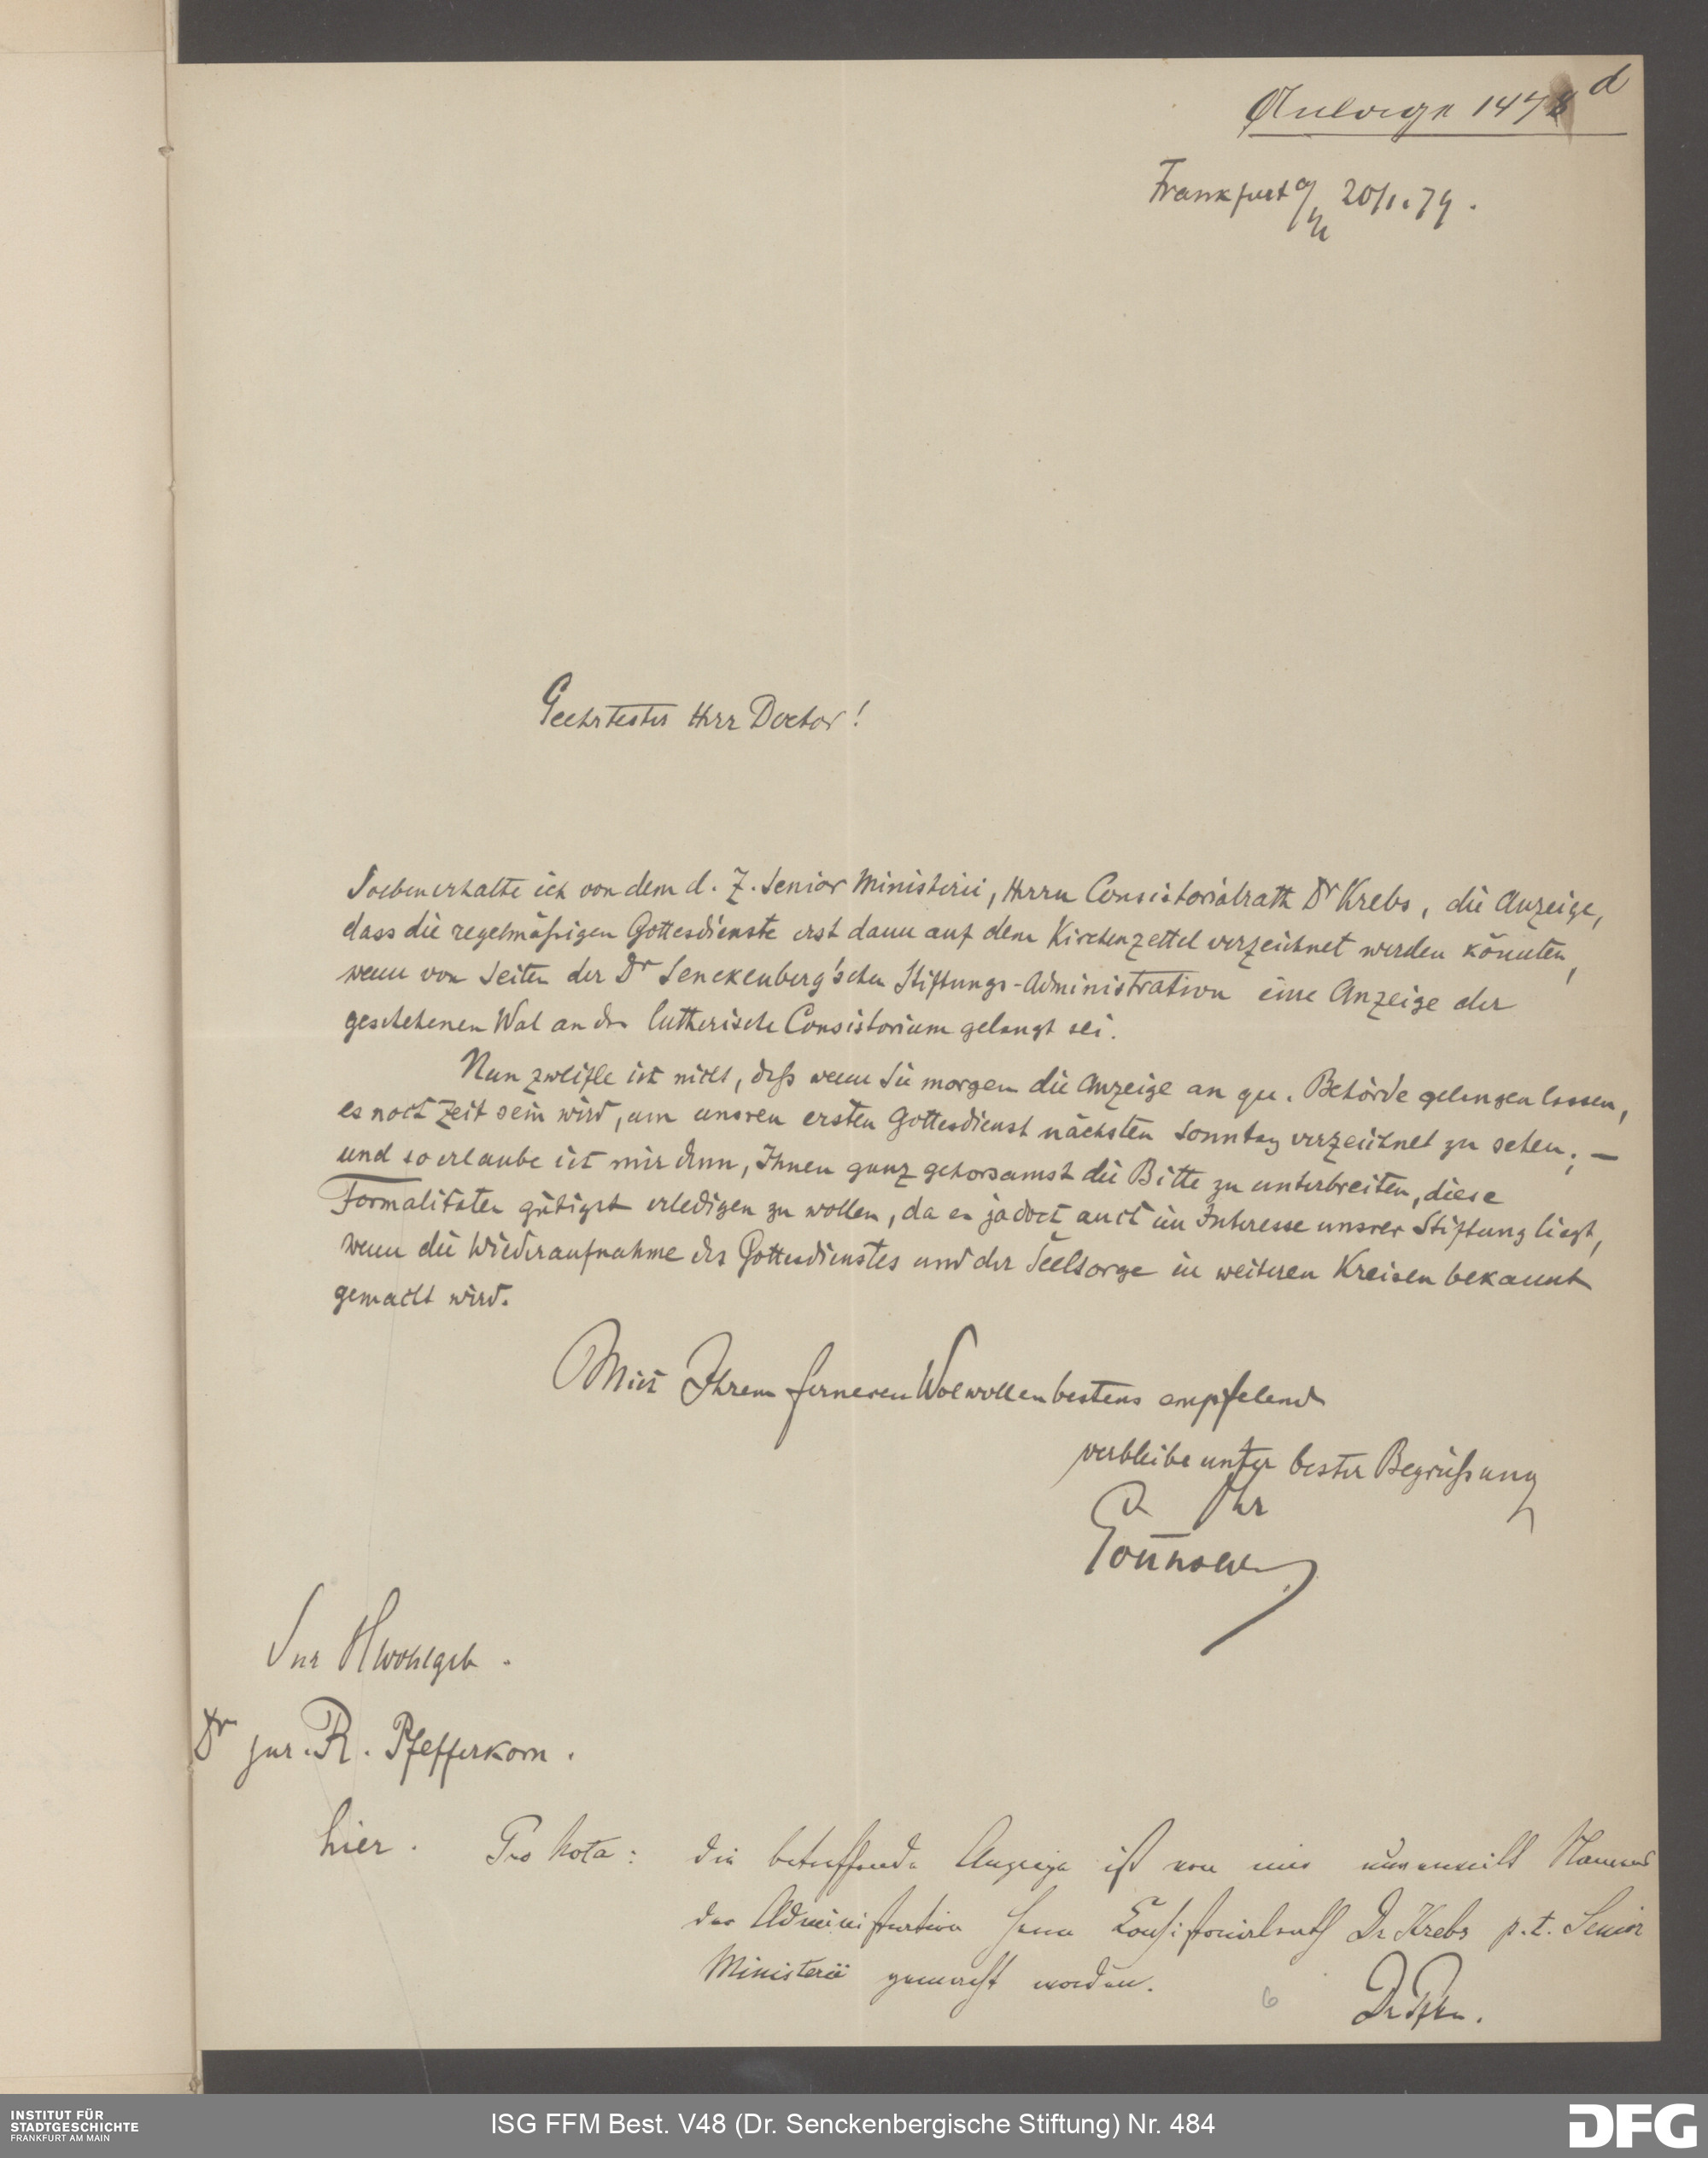 Anlage 1478 d
Frankfurt a/M 20/1. 79.
Geehrtester Herr Doctor!
Soeben erhalte ich von dem d. Z. Senior Ministerii, Herrn Consistorialrath Dr Krebs, die Anzeige,
dass die regelmäßigen Gottesdienste erst dann auf dem Kirchenzettel verzeichnet werden könnten,
wenn von Seiten der Dr Senckenberg'schen Stiftungs-Administration eine Anzeige der
geschehenen Wal an das lutherische Consistorium gelangt sei.
Nun zweifle ich nicht, daß wenn Sie morgen die Anzeige an qu. Behörde gelangen lassen,
es noch Zeit sein wird, um unsren ersten Gottesdienst nächsten Sonntag verzeichnet zu sehen; —
und so erlaube ich mir denn, Ihnen ganz gehorsamst die Bitte zu unterbreiten, diese
Formalitäten gütigst erledigen zu wollen, da es ja doch auch im Interesse unsrer Stiftung liegt,
wenn die Wiederaufnahme des Gottesdienstes und der Seelsorge in weiteren Kreisen bekannt
gemacht wird.
Mich Ihrem ferneren Wolwollen bestens empfelend
verbleibe unter bester Begrüßung
Ihr
Snr Hwohlgeb.
Dr jur. R. Pfefferkorn.
hier.
Pro Nota: die betreffende Anzeige ist von mir Namens
der Administration Herrn Consistorialrath Dr Krebs p. t. Senior
Ministerii gemacht worden.
6
INSTITUT FÜR
STADTGESCHICHTE
FRANKFURT AM MAIN
ISG FFM Best. V48 (Dr. Senckenbergische Stiftung) Nr. 484
DFG